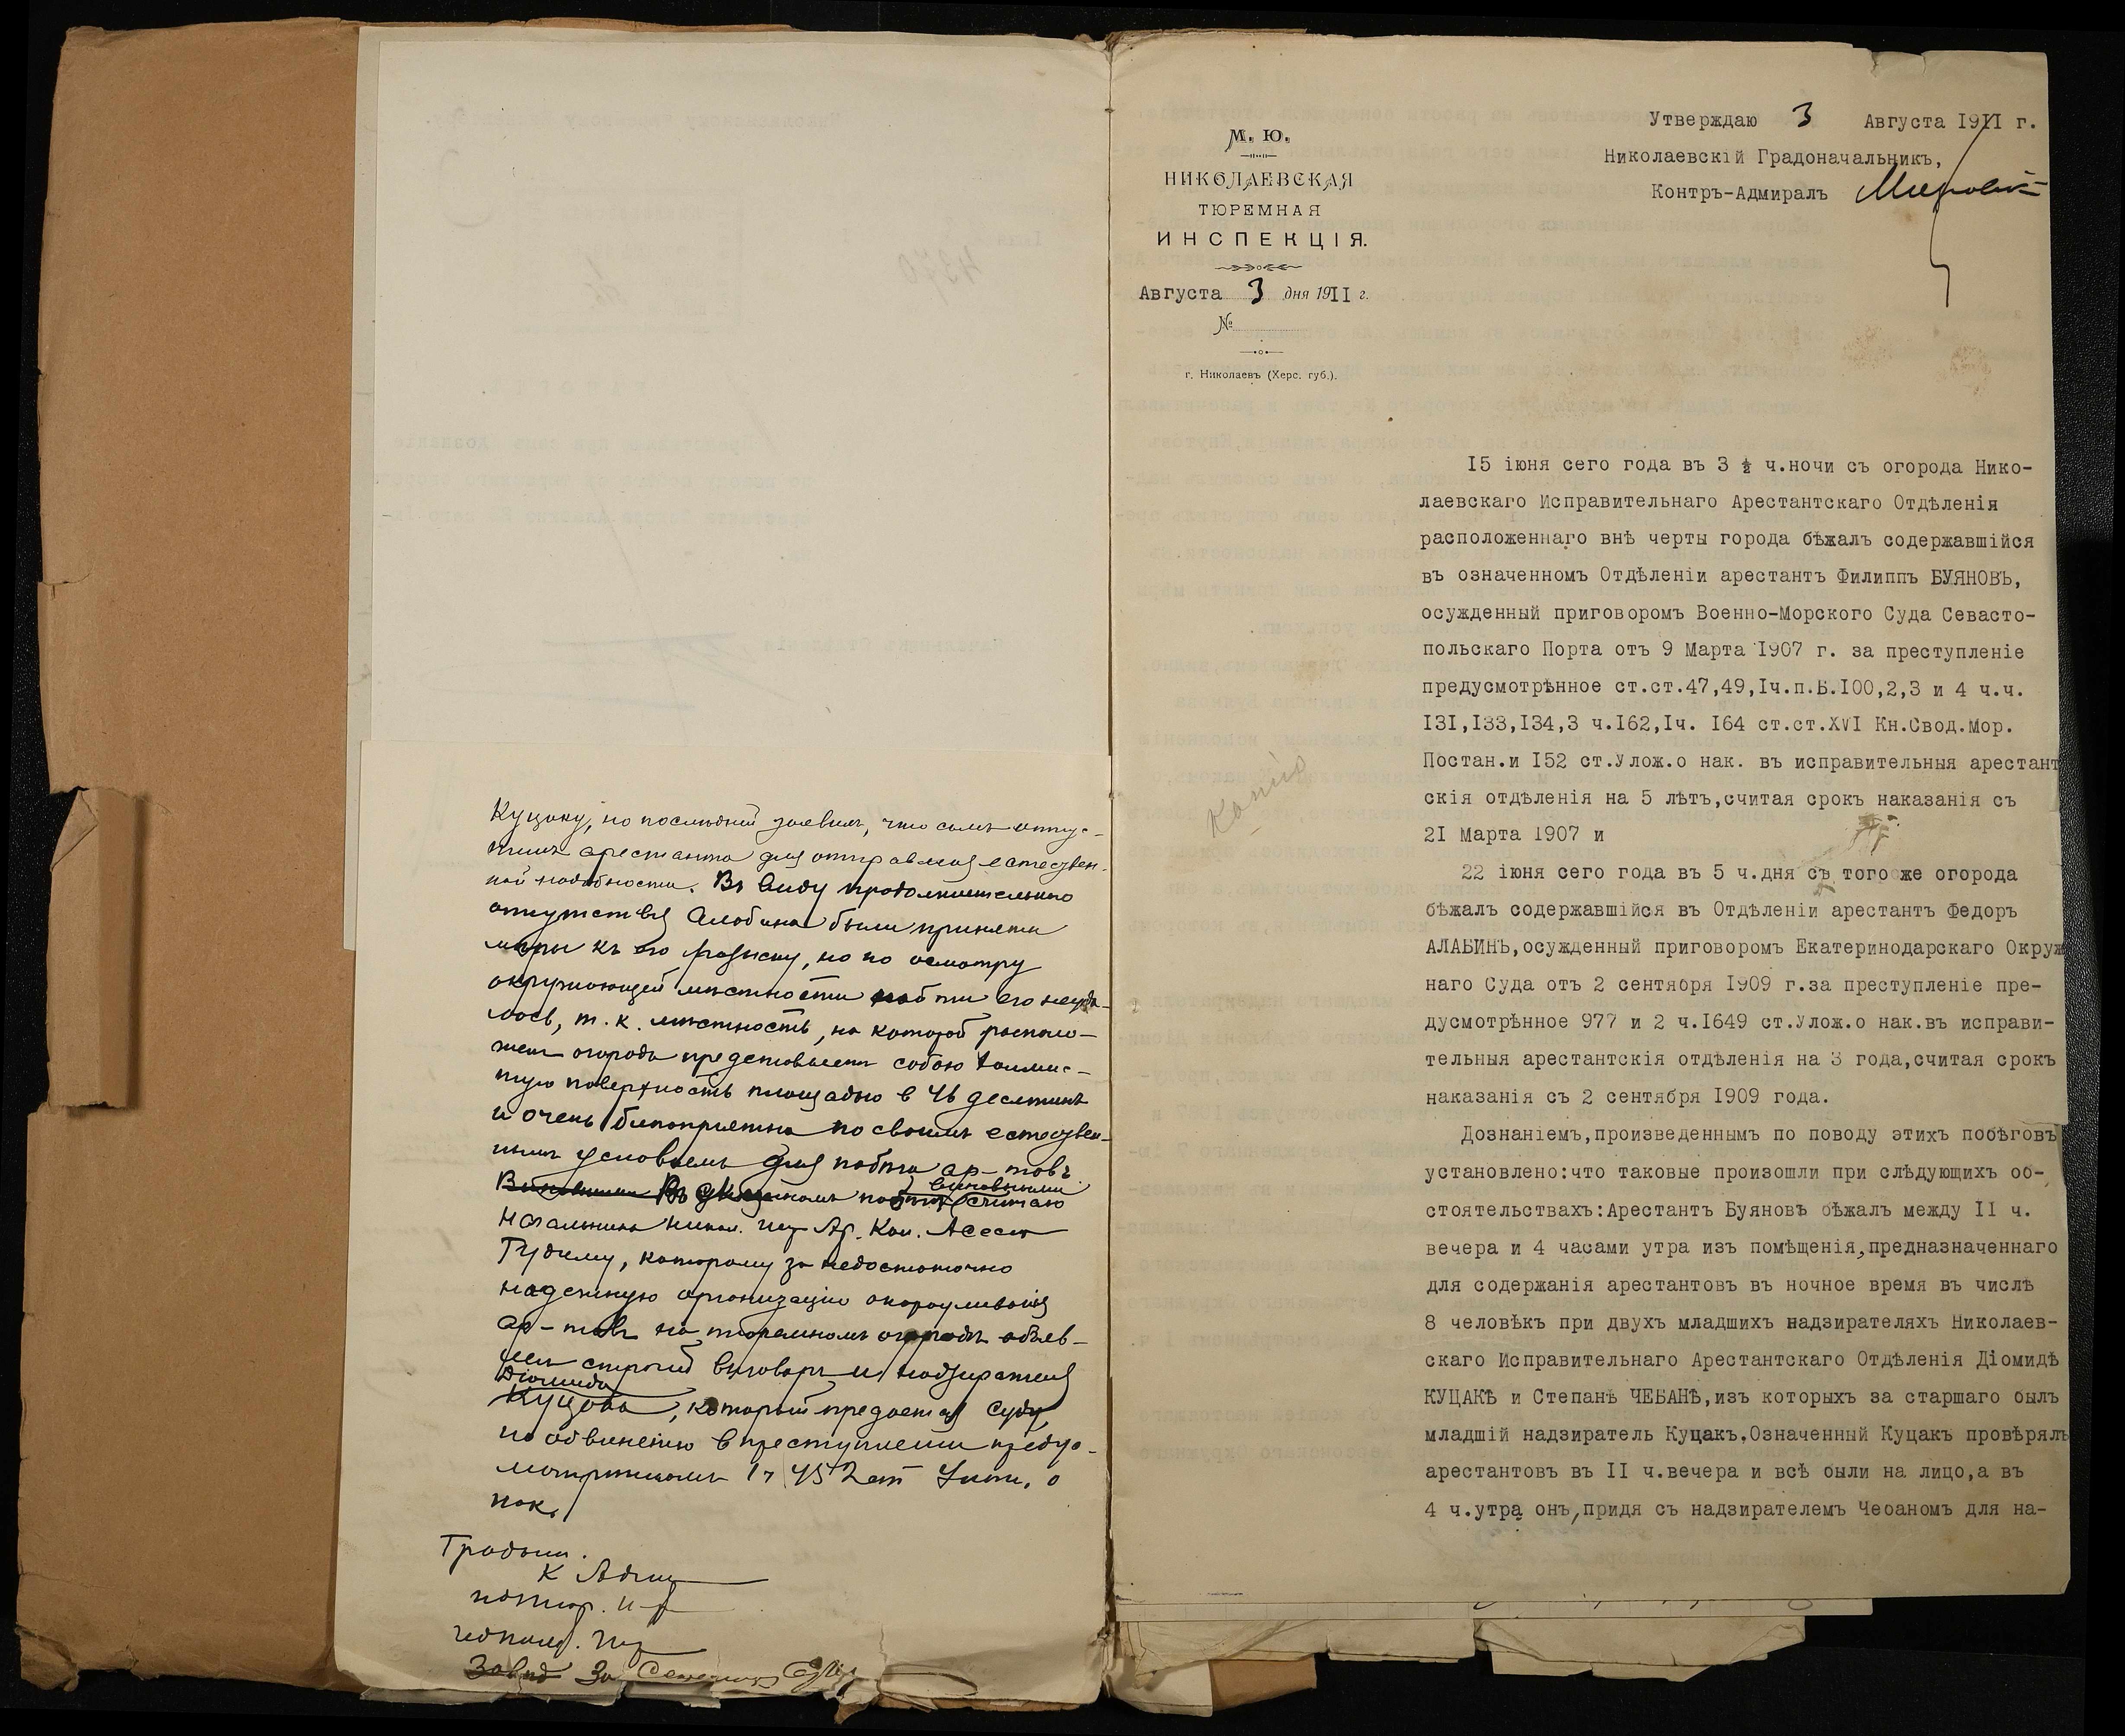 Куцаку, но последній заявилъ, что самъ отпус-
тилъ арестанта для отправленія естествен-
ной надобности. Въ виду продолжительнаго
отсутствія Алабина были приняты
мѣры къ его розыску, но по осмотру
окружающей мѣстности найти его неуда-
лось, т. к. мѣстность, на которой располо-
женъ огородъ представляетъ собою холмис-
тую поверхность площадью в 46 десятинъ
и очень благопріятна по своимъ естествен-
нымъ условіямъ для побѣга ар-товъ.
виновными
Въ побѣгѣ считаю
Начальника Никол. Ар. Кол. Асес
Гудиму, которому за недостаточно
надежную организацію окарауливанія
ар-товъ на тюремномъ огородѣ объяв-
ленъ строгій выговоръ и надзирателя
Діомида
Куцака, который предается суду
по обвиненію в преступленіи преду-
смотрѣнномъ 1 ч 452 ст Улож. о
нак.
Градон.
К Адм
М. Ю.
НИКОЛАЕВСКАЯ
ТЮРЕМНАЯ
ИНСПЕКЦІЯ.
Августа 3 дня 1911 г.
№
г. Николаевъ (Херс. губ.).
Копія
Утверждаю 3 Августа 1911 г.
Николаевскій Градоначальникъ,
Контръ-Адмиралъ
15 іюня сего года въ 3 ½ ч.ночи съ огорода Нико-
лаевскаго Исправительнаго Арестантскаго Отдѣленія
расположеннаго внѣ черты города бѣжалъ содержавшійся
въ означенномъ Отдѣленіи арестантъ Филиппъ БУЯНОВЪ,
осужденный приговоромъ Военно-Морского Суда Севасто-
польскаго Порта отъ 9 Марта 1907 г. за преступленіе
предусмотрѣнное ст.ст.47,49,1ч.п.Б.100,2,3 и 4 ч.ч.
131,133,134,3 ч.162,1ч. 164 ст.ст.XVI Кн.Свод.Мор.
Постан.и 152 ст.Улож.о нак. въ исправительныя арестант
скія отдѣленія на 5 лѣтъ,считая срокъ наказанія съ
21 Марта 1907 и
22 іюня сего года въ 5 ч.дня съ того же огорода
бѣжалъ содержавшійся въ Отдѣленіи арестантъ Федоръ
АЛАБИНЪ,осужденный приговоромъ Екатеринодарскаго Окруж
наго Суда отъ 2 сентября 1909 г.за преступленіе пре-
дусмотрѣнное 977 и 2 ч.1649 ст.Улож.о нак.въ исправи-
тельныя арестантскія отдѣленія на 3 года,считая срокъ
наказанія съ 2 сентября 1909 года.
Дознаніемъ,произведеннымъ по поводу этихъ побѣговъ
установлено:что таковые произошли при слѣдующихъ об-
стоятельствахъ:Арестантъ Буяновъ бѣжалъ между 11 ч.
вечера и 4 часами утра изъ помѣщенія,предназначеннаго
для содержанія арестантовъ въ ночное время въ числѣ
8 человѣкъ при двухъ младшихъ надзирателяхъ Николаев-
скаго Исправительнаго Арестантскаго Отдѣленія Діомидѣ
КУЦАКѢ и Степанѣ ЧЕБАНѢ,изъ которыхъ за старшаго былъ
младшій надзиратель Куцакъ.Означенный Куцакъ провѣрялъ
арестантовъ въ 11 ч.вечера и всѣ были на лицо,а въ
4 ч.утра онъ,придя съ надзирателемъ Чебаномъ для на-